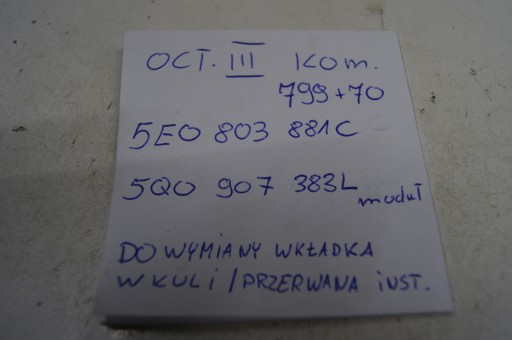 OCT. III KOm.
799+70
5E0 803 881C
5Q0 907 383L
moduł
DO WYMIANY WKŁADKA
W KULI / PRZERWANA iNST.